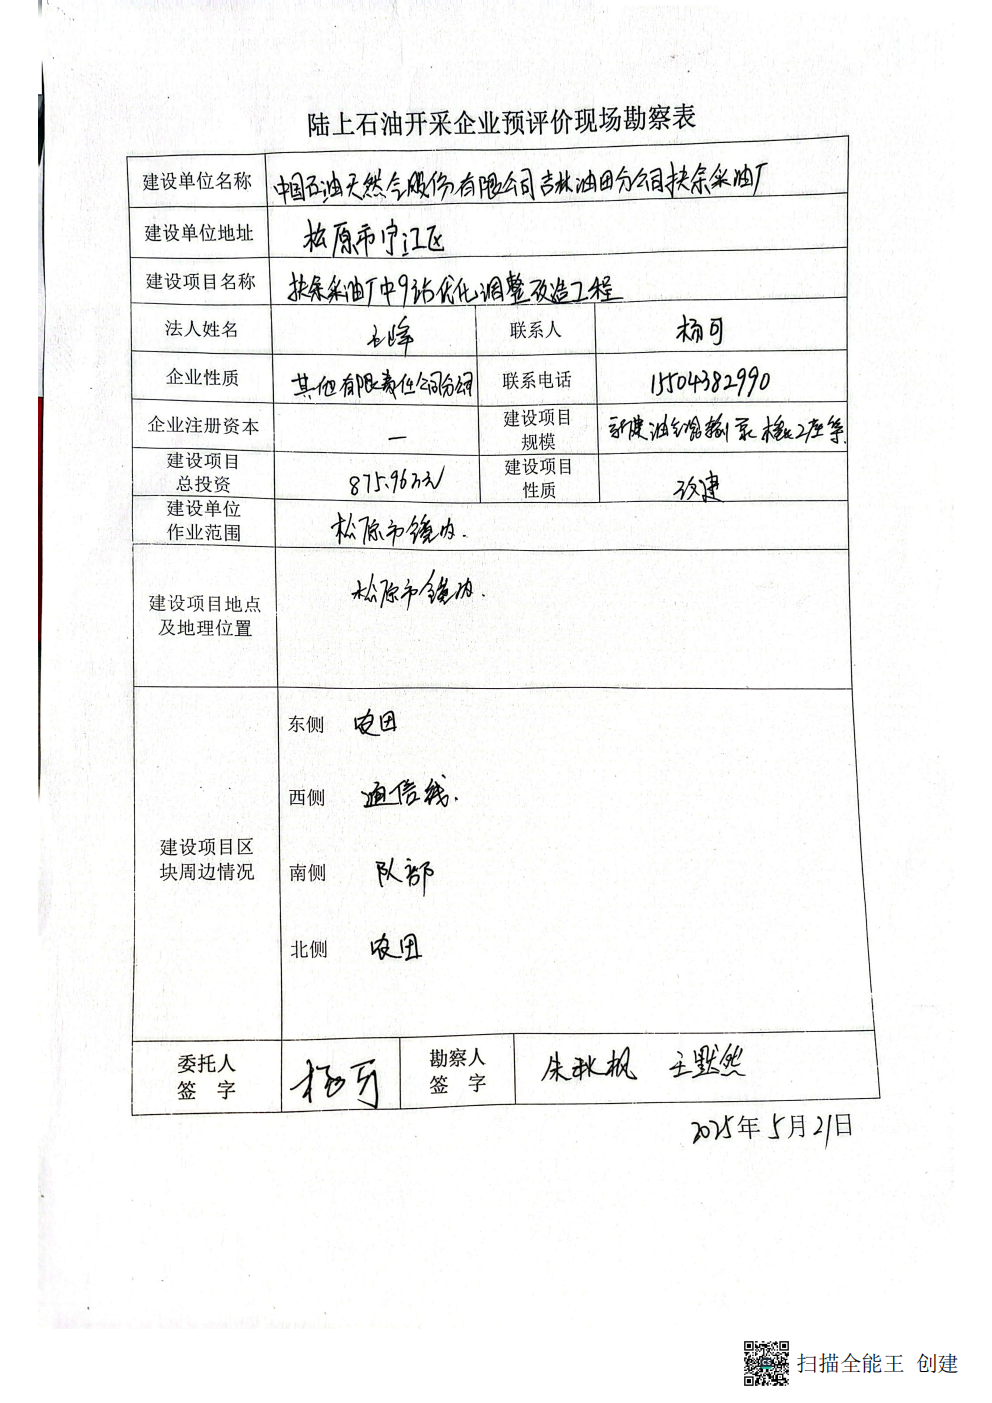 陆上石油开采企业预评价现场勘察表
建设单位名称 中国石油天然气股份有限公司吉林油田分公司扶余采油厂
建设单位地址 松原市宁江区
建设项目名称 扶余采油厂中9站优化调整改造工程
法人姓名 联系人 杨可
企业性质 其他有限责任公司分公司 联系电话 15504382990
企业注册资本 — 建设项目规模 新建油气混输泵 2座等
建设项目总投资 875.96万元 建设项目性质 改建
建设单位作业范围 松原市境内.
建设项目地点及地理位置 松原市境内.
建设项目区块周边情况
东侧 农田
西侧 通信线.
南侧 队部
北侧 农田
委托人签字 杨可 勘察人签字 朱秋枫 王默然
2025年5月21日
扫描全能王 创建